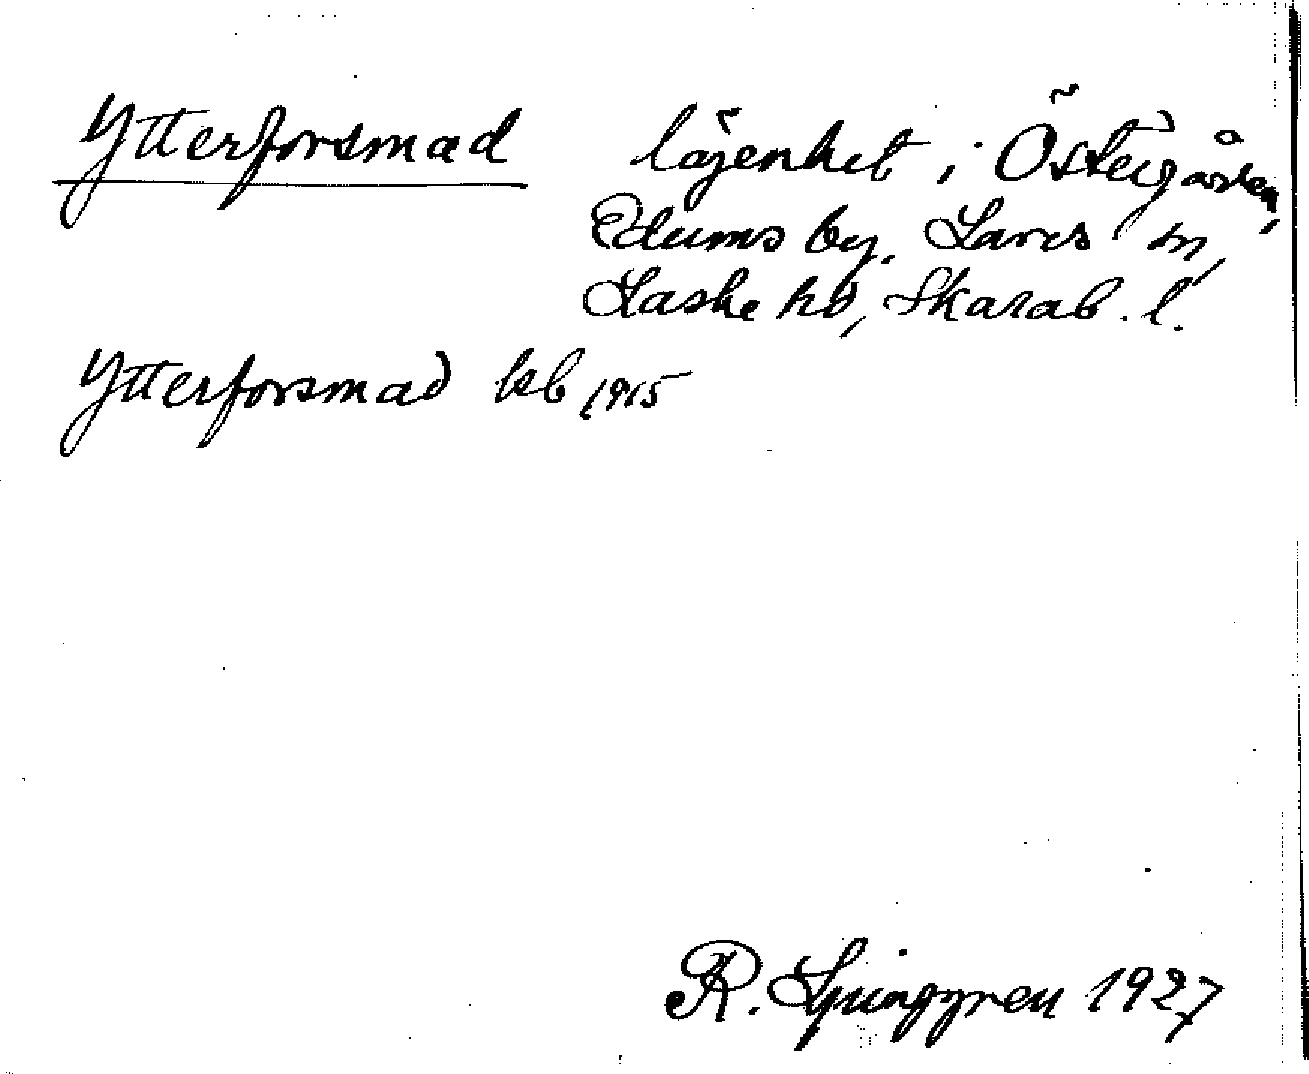 Ytterforsmad lägenhet i Östergården,
Edums by. Larvs sn,
Laske hd, Skarab. l.
Ytterforsmad kb 1915
R. Ljunggren 1927